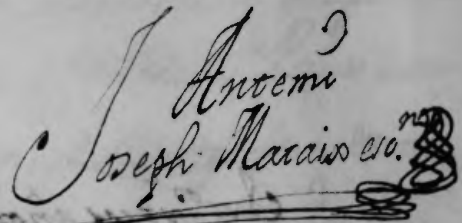 Antemi
Joseph Maraior esc.no